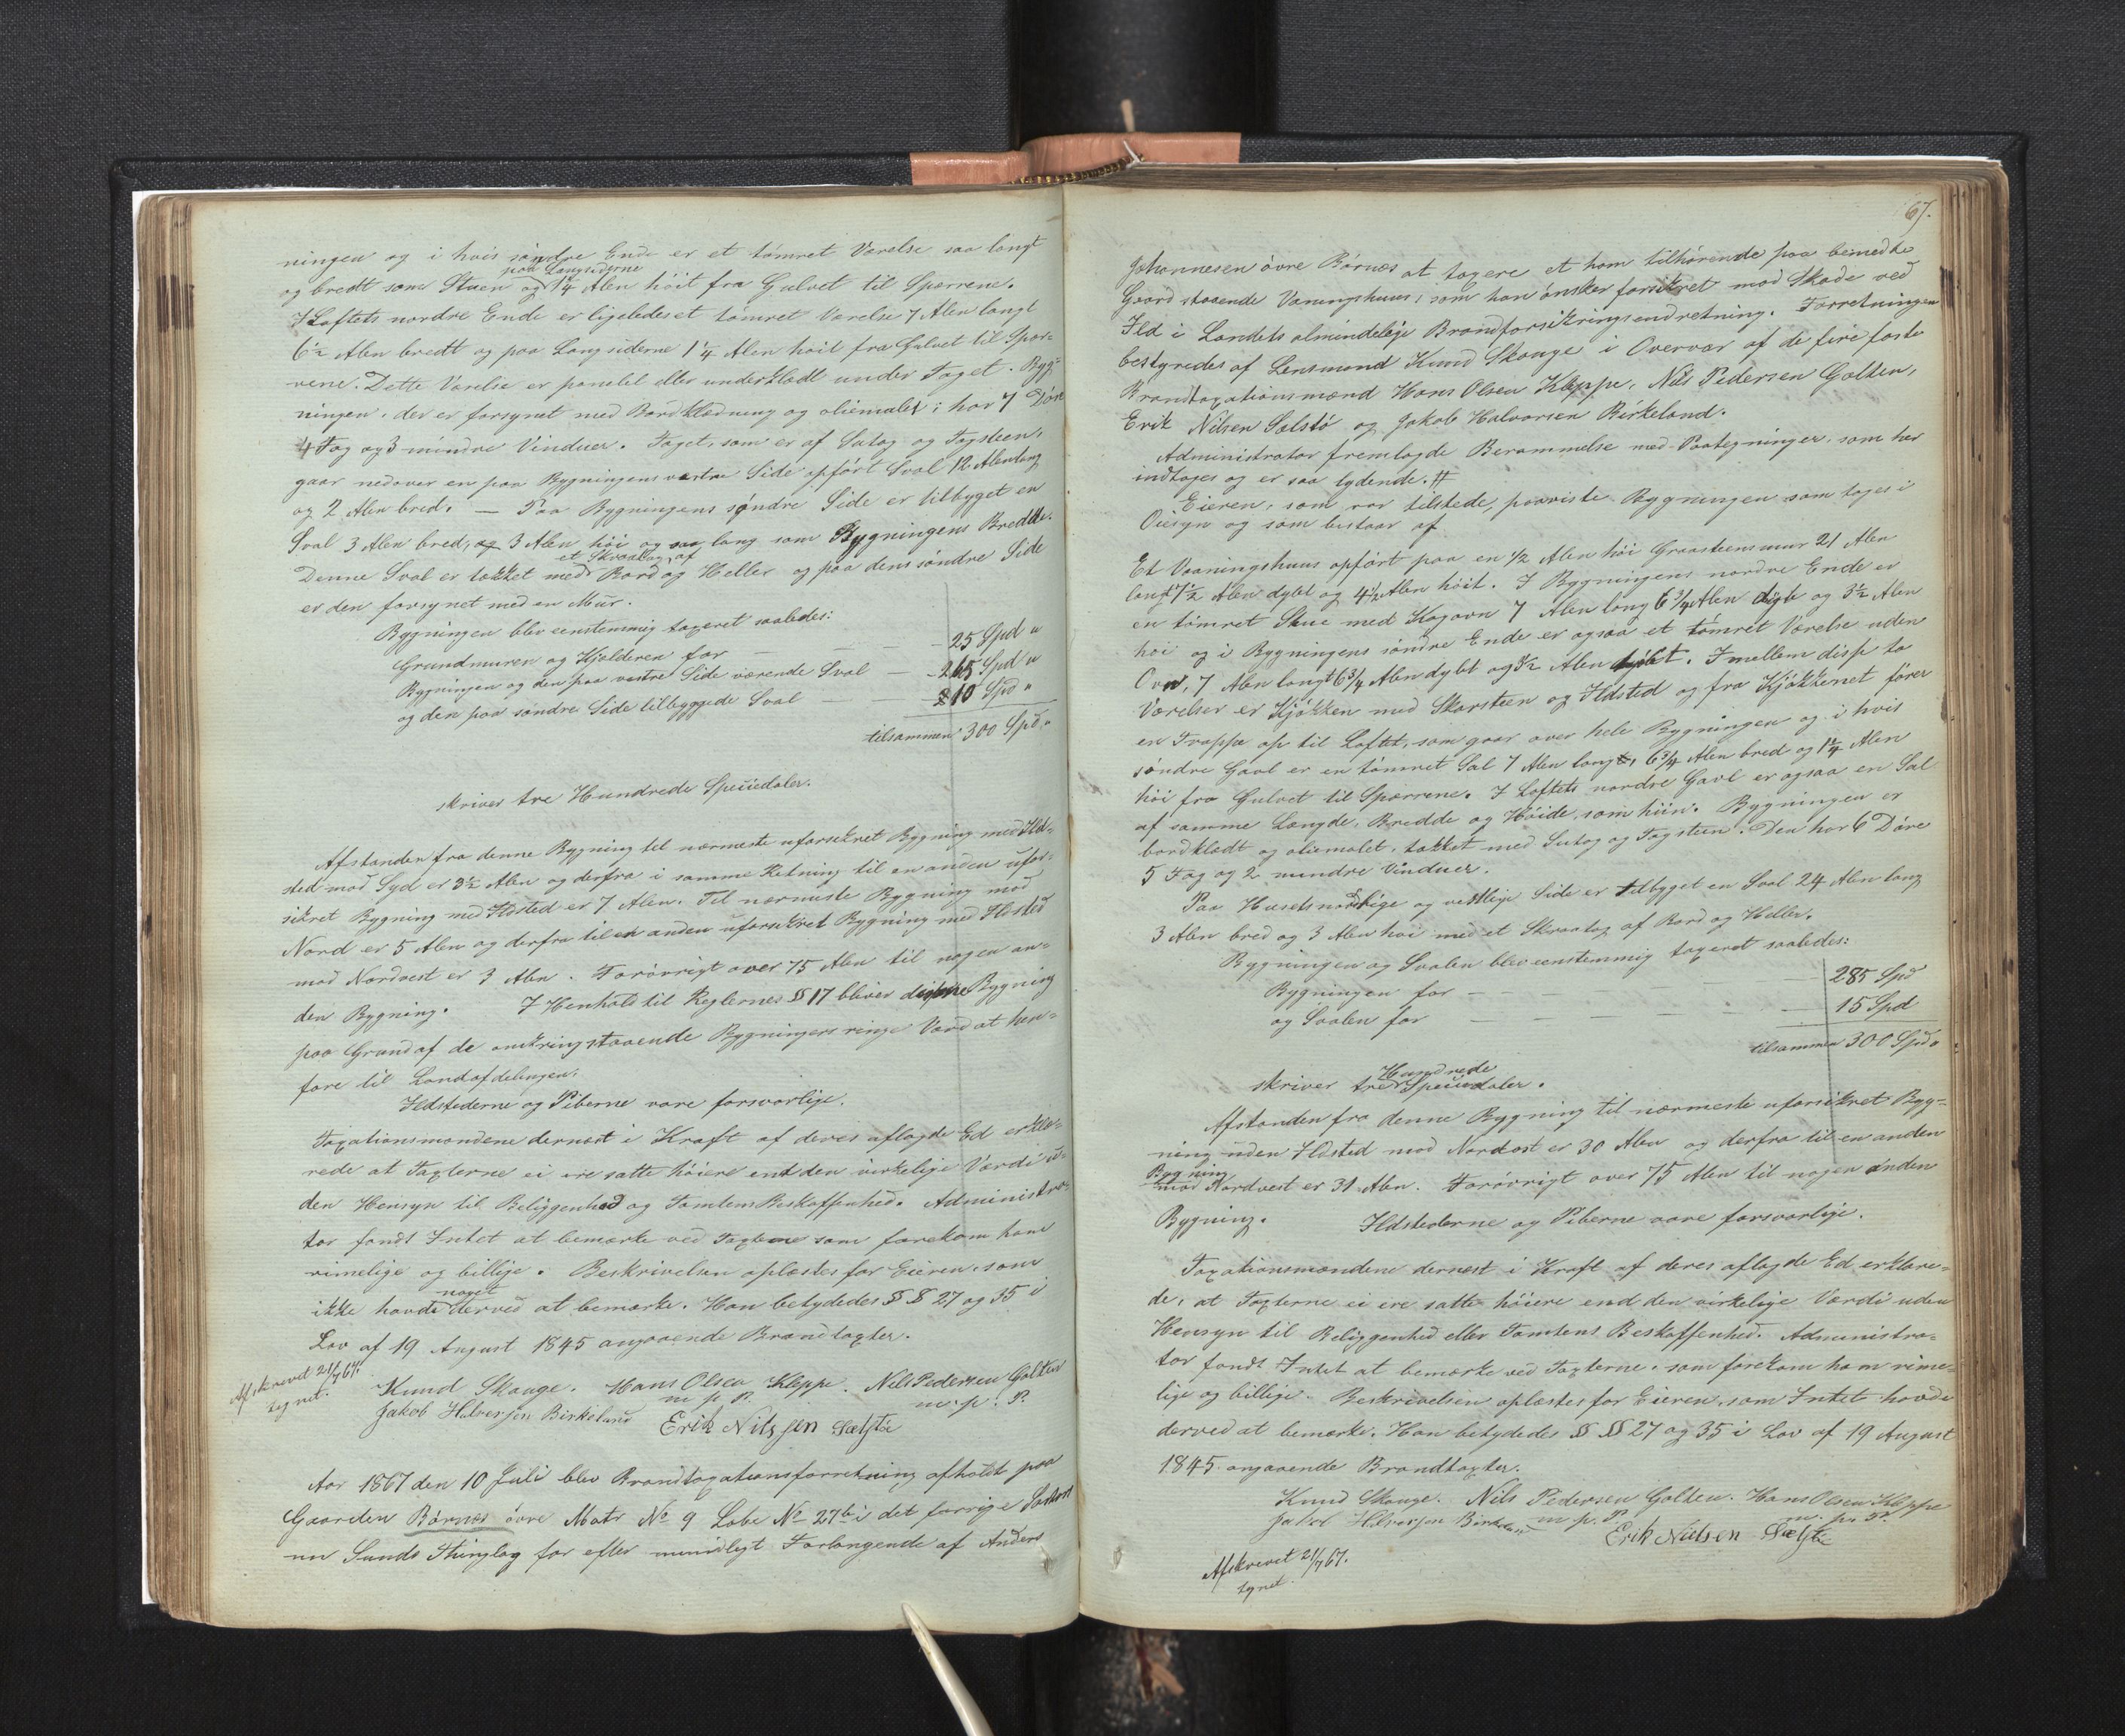 ningen og i hvis søndre Ende er et tømret Værelse saa langt
paa Langsiderne
og bredt som Stuen og 1¼ Alen høit fra Gulvet til Sperrene.
I Loftets nordre Ende er ligeledes et tømret Værelse 7 Alen langt
6½ Alen bredt og paa Langsiderne 1¼ Alen høit fra Gulvet til Spær-
rene. Dette Værelse er panelet eller underklædt under Taget. Byg-
ningen, der er forsynet med Bordklædning og oliemalet; har 7 Døre
4 Fag og 3 mindre Vinduer. Taget, som er af Sutag og Tagsteen,
gaar nedover en paa Bygningens vestre Side opført Sval 12 Alen lang
og 2 Alen bred. — Paa Bygningens søndre Side er tilbygget en
Sval 3 Alen bred, og 3 Alen høi og saa lang som Bygningens Bredde.
et Skraatag af
Denne Sval er tækket med Bord og Heller og paa dens søndre Side
er den forsynet med en Mur.
Bygningen blev eenstemmig taxeret saaledes:
Grundmuren og Kjelderen for — — — 25 Spd "
Bygningen og den paa vestre Side værende Sval — 265 Spd "
og den paa søndre Side tilbyggede Sval — — 10 Spd "
tilsammen 300 Spd "
skriver tre Hundrede Speciedaler.
Afstanden fra denne Bygning til nærmeste uforsikret Bygning med Ild-
sted mod Syd er 3½ Alen og derfra i samme Retning til en anden ufor-
sikret Bygning med Ildsted er 7 Alen. Til nærmeste Bygning mod
Nord er 5 Alen og derfra til en anden uforsikret Bygning med Ildsted
mod Nordvest er 3 Alen. Forøvrigt over 75 Alen til nogen an-
den Bygning. I Henhold til Reglernes § 17 bliver denne Bygning
paa Grund af de omkringstaaende Bygningers ringe Værd at hen-
føre til Landafdelingen.
Ildstederne og Piberne vare forsvarlige.
Taxationsmændene dernæst i Kraft af deres aflagde Ed erklæ-
rede at Taxterne ei ere satte høiere end den virkelige Værdi u-
den Hensyn til Beliggenhed og Tomtens Beskaffenhed. Administra-
tor fandt Intet at bemærke ved Taxterne som forekom ham
rimelige og billige. Beskrivelsen oplæstes for Eieren, som
noget
ikke havde derved at bemærke. Han betydedes §§ 27 og 35 i
Lov af 19 August 1845 angaaende Brandtaxter.
Afskrevet 21/7 67.
tegnet.
Knud Skauge. Hans Olsen Kleppe. Nils Pedersen Golten
m. p. P. m. p. P.
Jakob Halversen Birkeland Erik Nilssen Sælstø
Aar 1867 den 10 Juli blev Brandtaxationsforretning afholdt paa
Gaarden Børnæs øvre Matr No 9 Løbe No 27b i det forrige
nu Sunds Thinglag for efter mundligt Forlangende af Anders
67.
Johannesen øvre Børnæs at taxere et ham tilhørende paa bemeldte
Gaard staaende Vaaningshuus, som han ønsker forsikret mod Skade ved
Ild i Landets almindelige Brandforsikringsindretning. Forretningen
bestyredes af Lensmand Knud Skauge i Overvær af de fire faste
Brandtaxationsmænd Hans Olsen Kleppe, Nils Pedersen Golten,
Erik Nilsen Sælstø og Jakob Halvorsen Birkeland.
Administrator fremlagde Berammelse med Paategninger, som her
indtages og er saa lydende. #
Eieren, som var tilstede, paaviste Bygningen som toges i
Øiesyn og som bestaar af
Et Vaaningshuus opført paa en ½ Alen høi Graasteensmur 21 Alen
langt 7½ Alen dybt og 4½ Alen høit. I Bygningens nordre Ende er
en tømret Stue med Kogovn 7 Alen lang 6¾ Alen dyb og 3½ Alen
høi og i Bygningens søndre Ende er ogsaa et tømret Værelse uden
Ovn, 7 Alen langt 6¾ Alen dybt og 3½ Alen høit. Imellem disse to
Værelser er Kjøkken med Skorsteen og Ildsted og fra Kjøkkenet fører
en Trappe op til Loftet, som gaar over hele Bygningen og i hvis
søndre Gavl er en tømret Sal 7 Alen lang, 6¾ Alen bred og 1¼ Alen
høi fra Gulvet til Spærrene. I Loftets nordre Gavl er ogsaa en Sal
af samme Længde, Bredde og Høide, som hiin. Bygningen er
bordklædt og oliemalet, tækket med Sutag og Tagsteen. Den har 6 Døre
5 Fag og 2 mindre Vinduer.
Paa Husets nordlige og vestlige Side er tilbygget en Sval 24 Alen lang
3 Alen bred og 3 Alen høi med et Skraatag af Bord og Heller.
Bygningen og Svalen blev eenstemmig taxeret saaledes:
Bygningen for — — — — — 285 Spd
og Svalen for — — — — — 15 Spd
tilsammen 300 Spd "
Hundrede
skriver tre Speciedaler.
Afstanden fra denne Bygning til nærmeste uforsikret Byg-
ning uden Ildsted mod Nordost er 30 Alen og derfra til en anden
Bygning
mod Nordvest er 31 Alen. Forøvrigt over 75 Alen til nogen anden
Bygning. Ildstederne og Piberne vare forsvarlige.
Taxationsmændene dernæst i Kraft af deres aflagde Ed erklære-
de, at Taxterne ei ere satte høiere end den virkelige Værdi uden
Hensyn til Beliggenhed eller Tomtens Beskaffenhed. Administra-
tor fandt Intet at bemærke ved Taxterne, som forekom ham rime-
lige og billige. Beskrivelsen oplæstes for Eieren, som Intet havde
derved at bemærke. Han betydedes §§ 27 og 35 i Lov af 19 August
1845 angaaende Brandtaxter.
Knud Skauge. Nils Pedersen Golten. Hans Olsen Kleppe
m. p. P. m. p. P.
Jakob Halversen Birkeland Erik Nilsen Sælstø
Afskrevet 21/7 67.
tegnet.